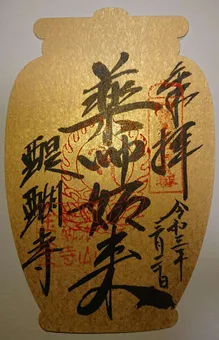 奉拝
令和三年
二月二日
薬師如来
醍醐寺